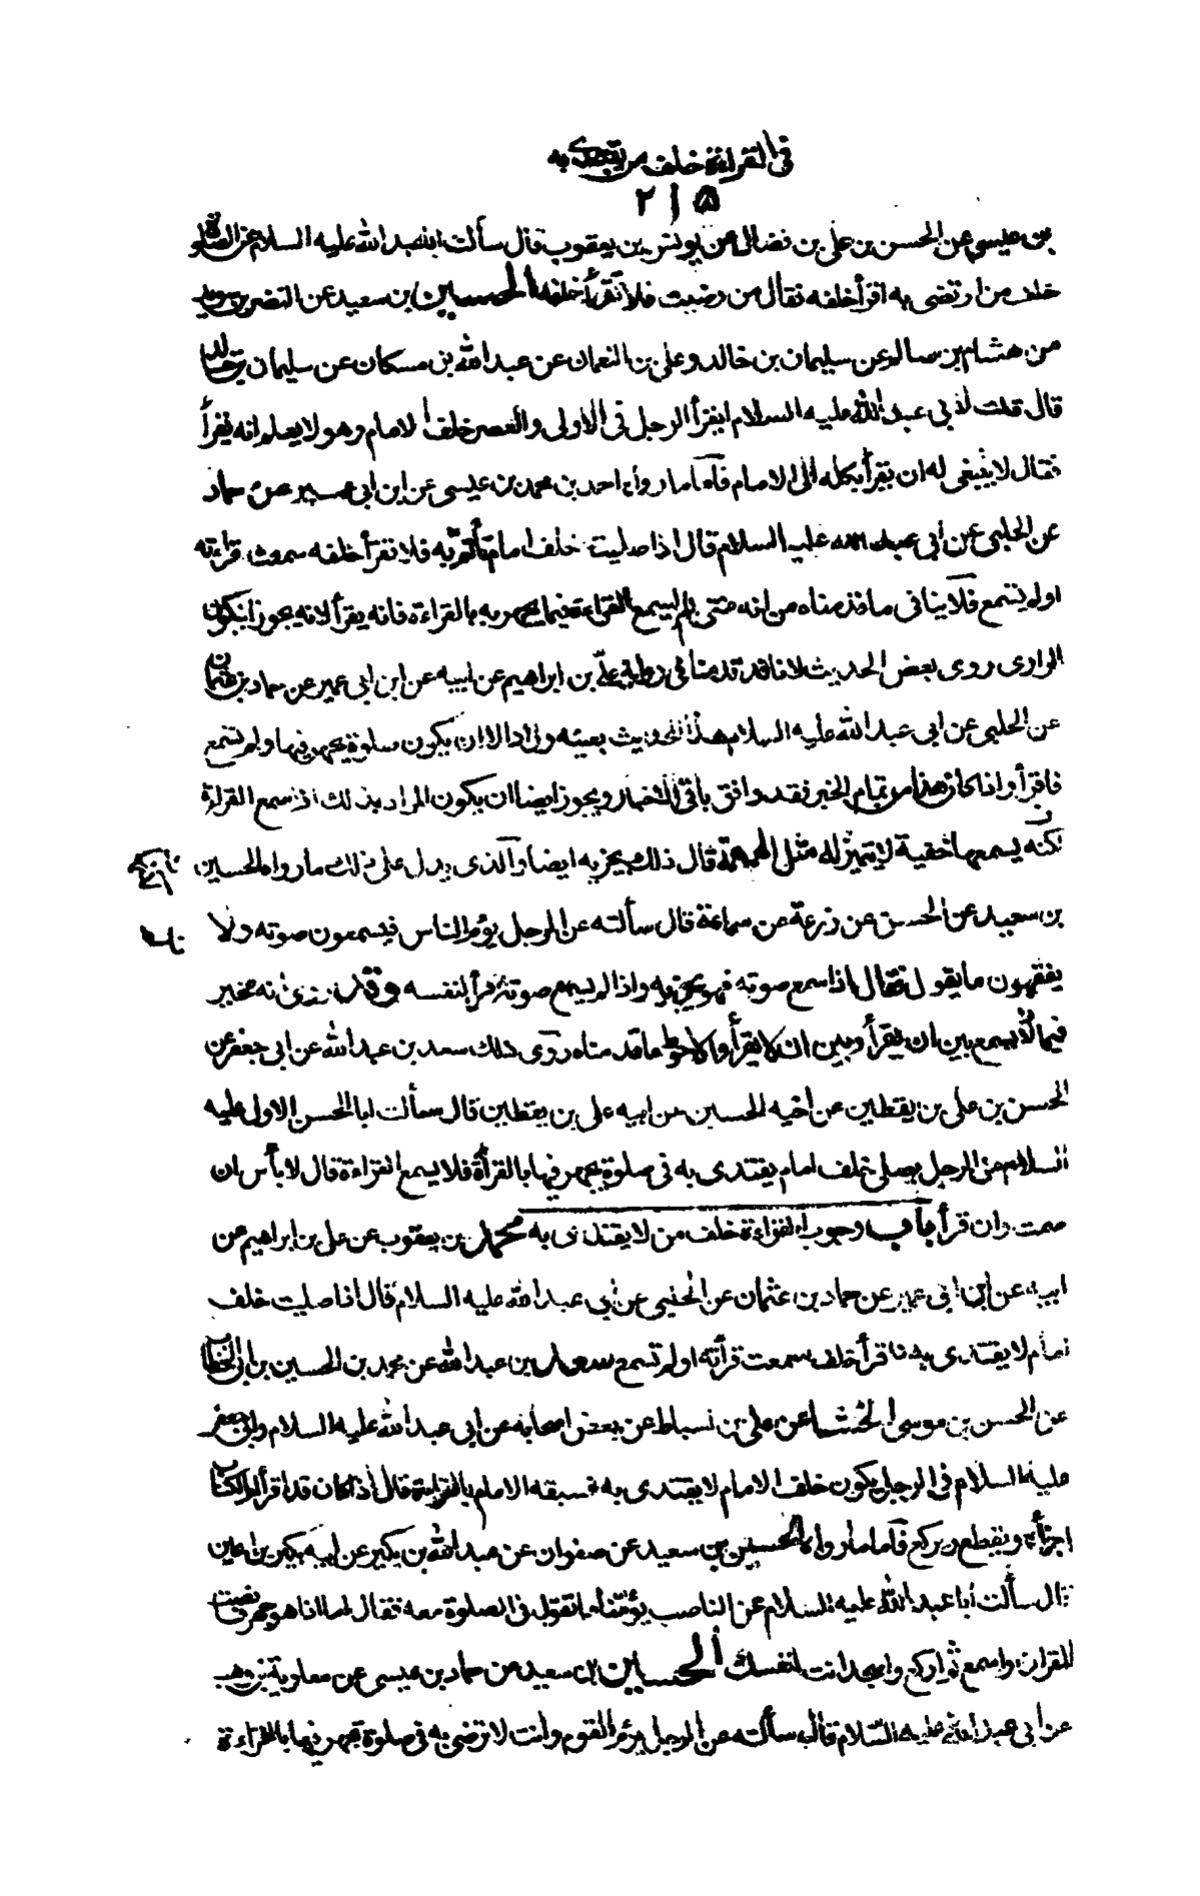 فى القراءة خلف من يقتدى به
٢١٥
بن عيسى عن الحسن بن على بن فضال عن يونس بن يعقوب قال سألت ابا عبد الله عليه السلام عن الصلوة
خلف من ارتضى به اقرأ خلفه فقال من رضيت فلا تقرأ خلفه الحسين بن سعيد عن النضر بن سويد
عن هشام بن سالم عن سليمان بن خالد وعلى بن النعمان عن عبد الله بن مسكان عن سليمان بن خالد
قال قلت لابى عبد الله عليه السلام ايقرأ الرجل فى الاولى والعصر خلف الامام وهو لا يعلم انه يقرأ
فقال لا ينبغى له ان يقرأ يكله الى الامام فاما ما رواه احمد بن محمد بن عيسى عن ابن ابى عمير عن حماد
عن الحلبى عن ابى عبد الله عليه السلام قال اذا صليت خلف امام تأتم به فلا تقرأ خلفه سمعت قراءته
او لم تسمع فلا ينافى ما قدمناه من انه متى لم يسمع القراءة فيما يجهر به بالقراءة فانه يقرأ لانه يجوز ان يكون
الراوى روى بعض الحديث لانا قد قدمنا فى رواية على بن ابراهيم عن ابيه عن ابن ابى عمير عن حماد بن عثمان
عن الحلبى عن ابى عبد الله عليه السلام هذا الحديث بعينه وزاد الا ان يكون صلوة يجهر فيها ولم تسمع
فاقرأ واذا كان هذا من تمام الخبر فقد وافق باقى الاخبار ويجوز ايضا ان يكون المراد بذلك اذا سمع القراءة
لكنه يسمعها خفية لا يتميز له مثل الهمهمة قال ذلك يجزيه ايضا والذى يدل على ذلك ما رواه الحسين
بن سعيد عن الحسن عن زرعة عن سماعة قال سألته عن الرجل يؤم الناس فيسمعون صوته ولا
يفقهون ما يقول فقال اذا سمع صوته فهو يجزيه واذا لم يسمع صوته قرأ لنفسه وقد روى انه مخير
فيما لا يسمع بين ان يقرأ وبين ان لا يقرأ والاحوط ما قدمناه روى ذلك سعد بن عبد الله عن ابى جعفر عن
الحسن بن على بن يقطين عن اخيه الحسين عن ابيه على بن يقطين قال سألت ابا الحسن الاول عليه
السلام عن الرجل يصلى خلف امام يقتدى به فى صلوة يجهر فيها بالقراءة فلا يسمع القراءة قال لا بأس ان
صمت وان قرأ باب وجوب القراءة خلف من لا يقتدى به محمد بن يعقوب عن على بن ابراهيم عن
ابيه عن ابن ابى عمير عن حماد بن عثمان عن الحلبى عن ابى عبد الله عليه السلام قال اذا صليت خلف
امام لا يقتدى به فاقرأ خلفه سمعت قرأته او لم تسمع سعد بن عبد الله عن محمد بن الحسين بن ابى الخطاب
عن الحسن بن موسى الخشاب عن على بن اسباط عن بعض اصحابه عن ابى عبد الله عليه السلام وابى جعفر
عليه السلام فى الرجل يكون خلف الامام لا يقتدى به فسبقه الامام بالقراءة قال اذا كان قد قرأ ام الكتاب
اجزأه ويقطع ويركع فاما ما رواه الحسين بن سعيد عن صفوان عن عبد الله بن بكير عن ابيه بكير بن اعين
قال سألت ابا عبد الله عليه السلام عن الناصب يؤمنا ما تقول فى الصلوة معه فقال اما اذا هو جهر فانصت
للقران واسمع ثم اركع واسجد انت لنفسك الحسين بن سعيد عن حماد بن عيسى عن معاوية بن وهب
عن ابى عبد الله عليه السلام قال سألته عن الرجل يؤم القوم وانت لا ترضى به فى صلوة تجهر فيها بالقراءة